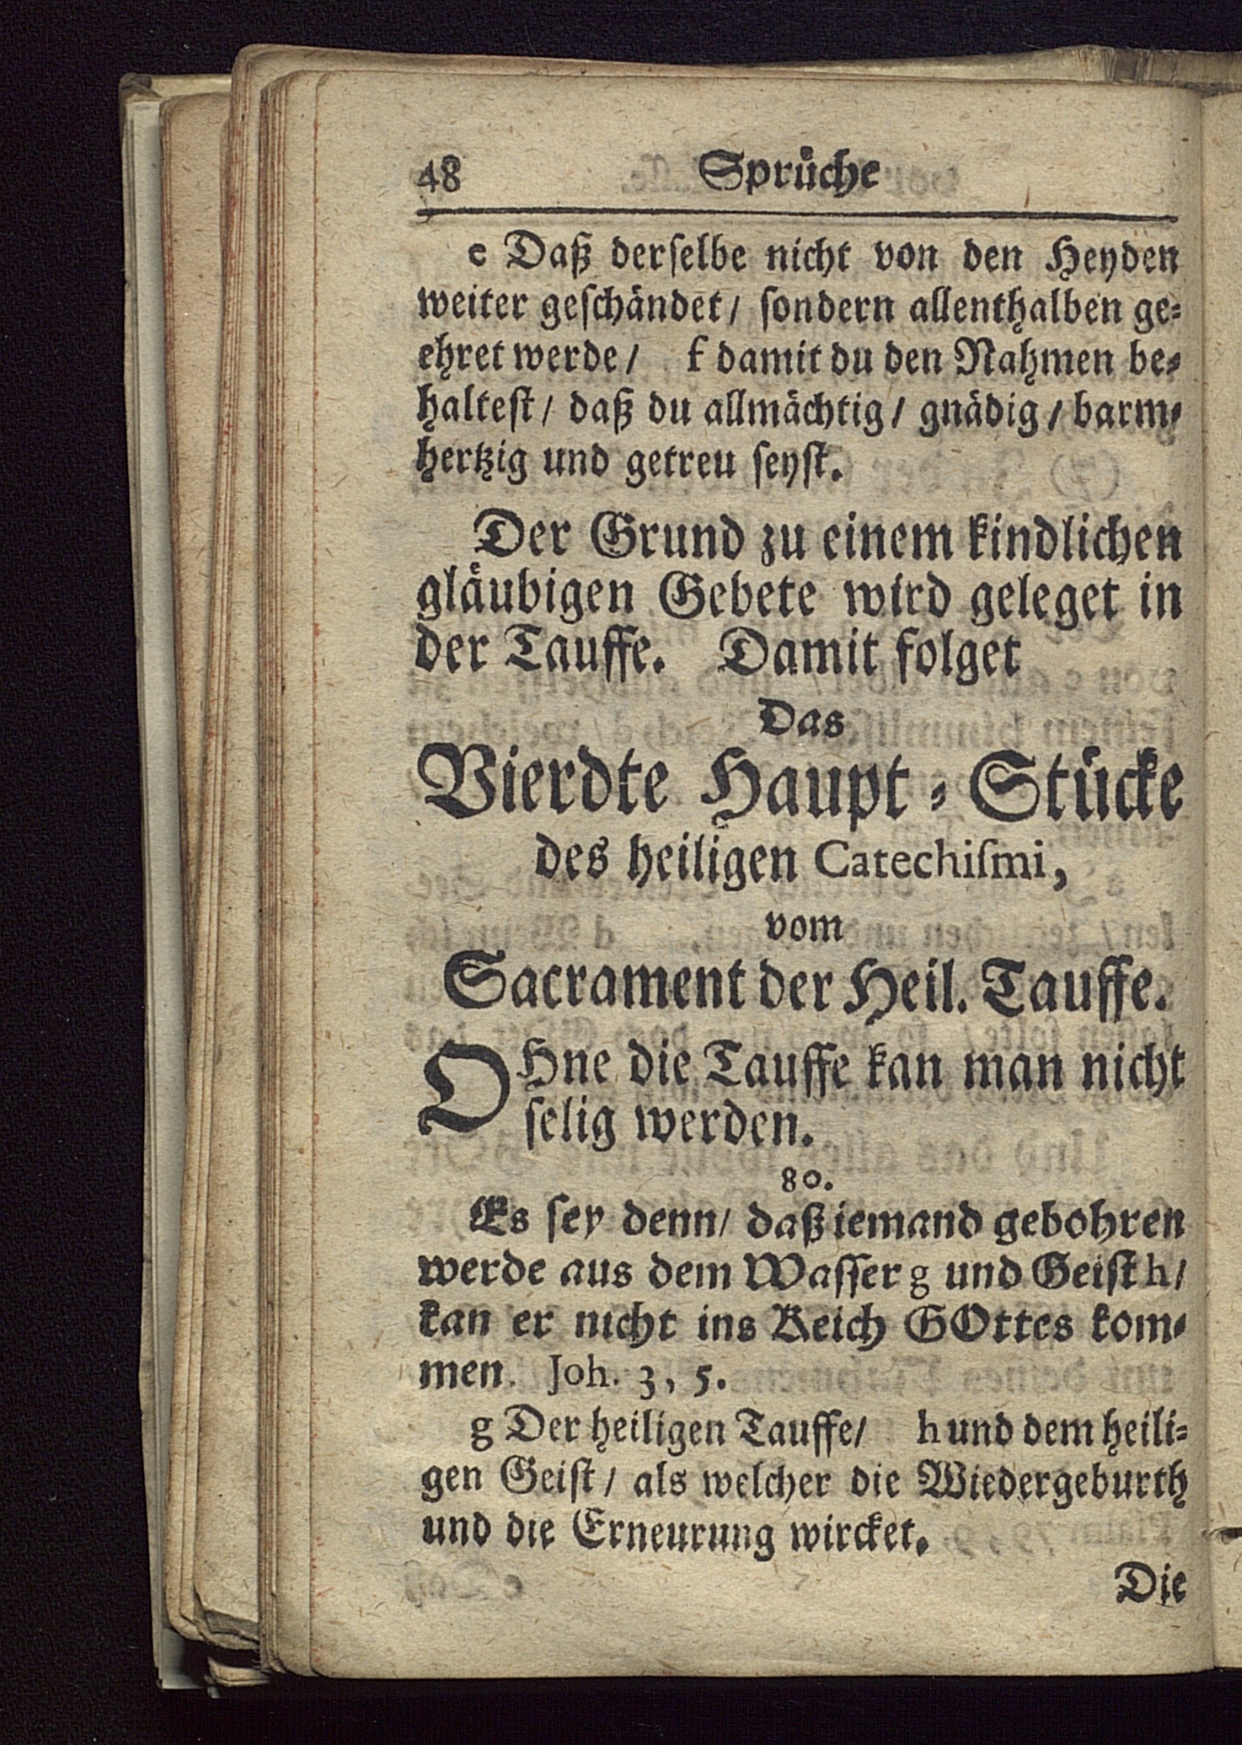 48 Sprüche
e Daß derselbe nicht von den Heyden
weiter geschändet/ sondern allenthalben ge-
ehret werde/ f damit du den Nahmen be-
haltest/ daß du allmächtig/ gnädig/ barm-
hertzig und getreu seyst.
Der Grund zu einem kindlichen
gläubigen Gebete wird geleget in
der Tauffe. Damit folget
Das
Vierdte Haupt-Stücke
des heiligen Catechiſmi,
vom
Sacrament der Heil. Tauffe.
OHne die Tauffe kan man nicht
selig werden.
80.
Es sey denn/ daß iemand gebohren
werde aus dem Wasser g und Geist h/
kan er nicht ins Reich GOttes kom-
men. Joh. 3, 5.
g Der heiligen Tauffe/ h und dem heili-
gen Geist/ als welcher die Wiedergeburth
und die Erneurung wircket.
Die